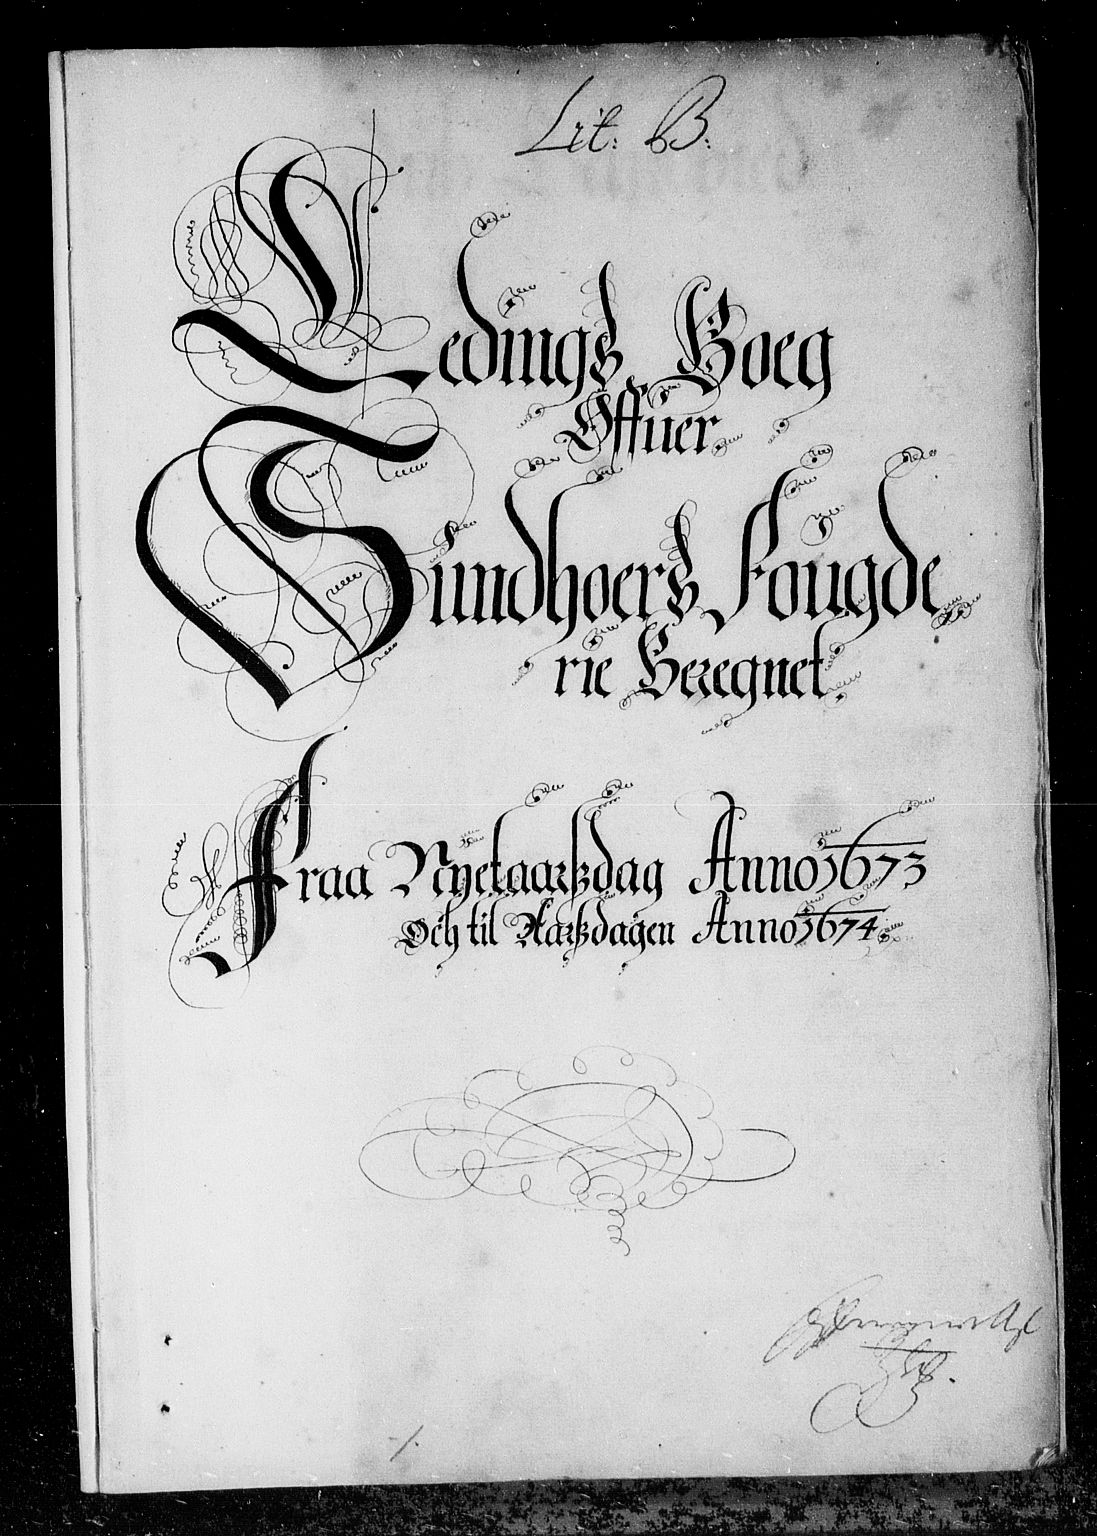 Lit: B:
Ledings Boeg
Øffuer
Sundhoers Fougde
rie Beregnet
Fraa Nyetaarsdag Anno 1673
Och til Aarsdagen Anno 1674